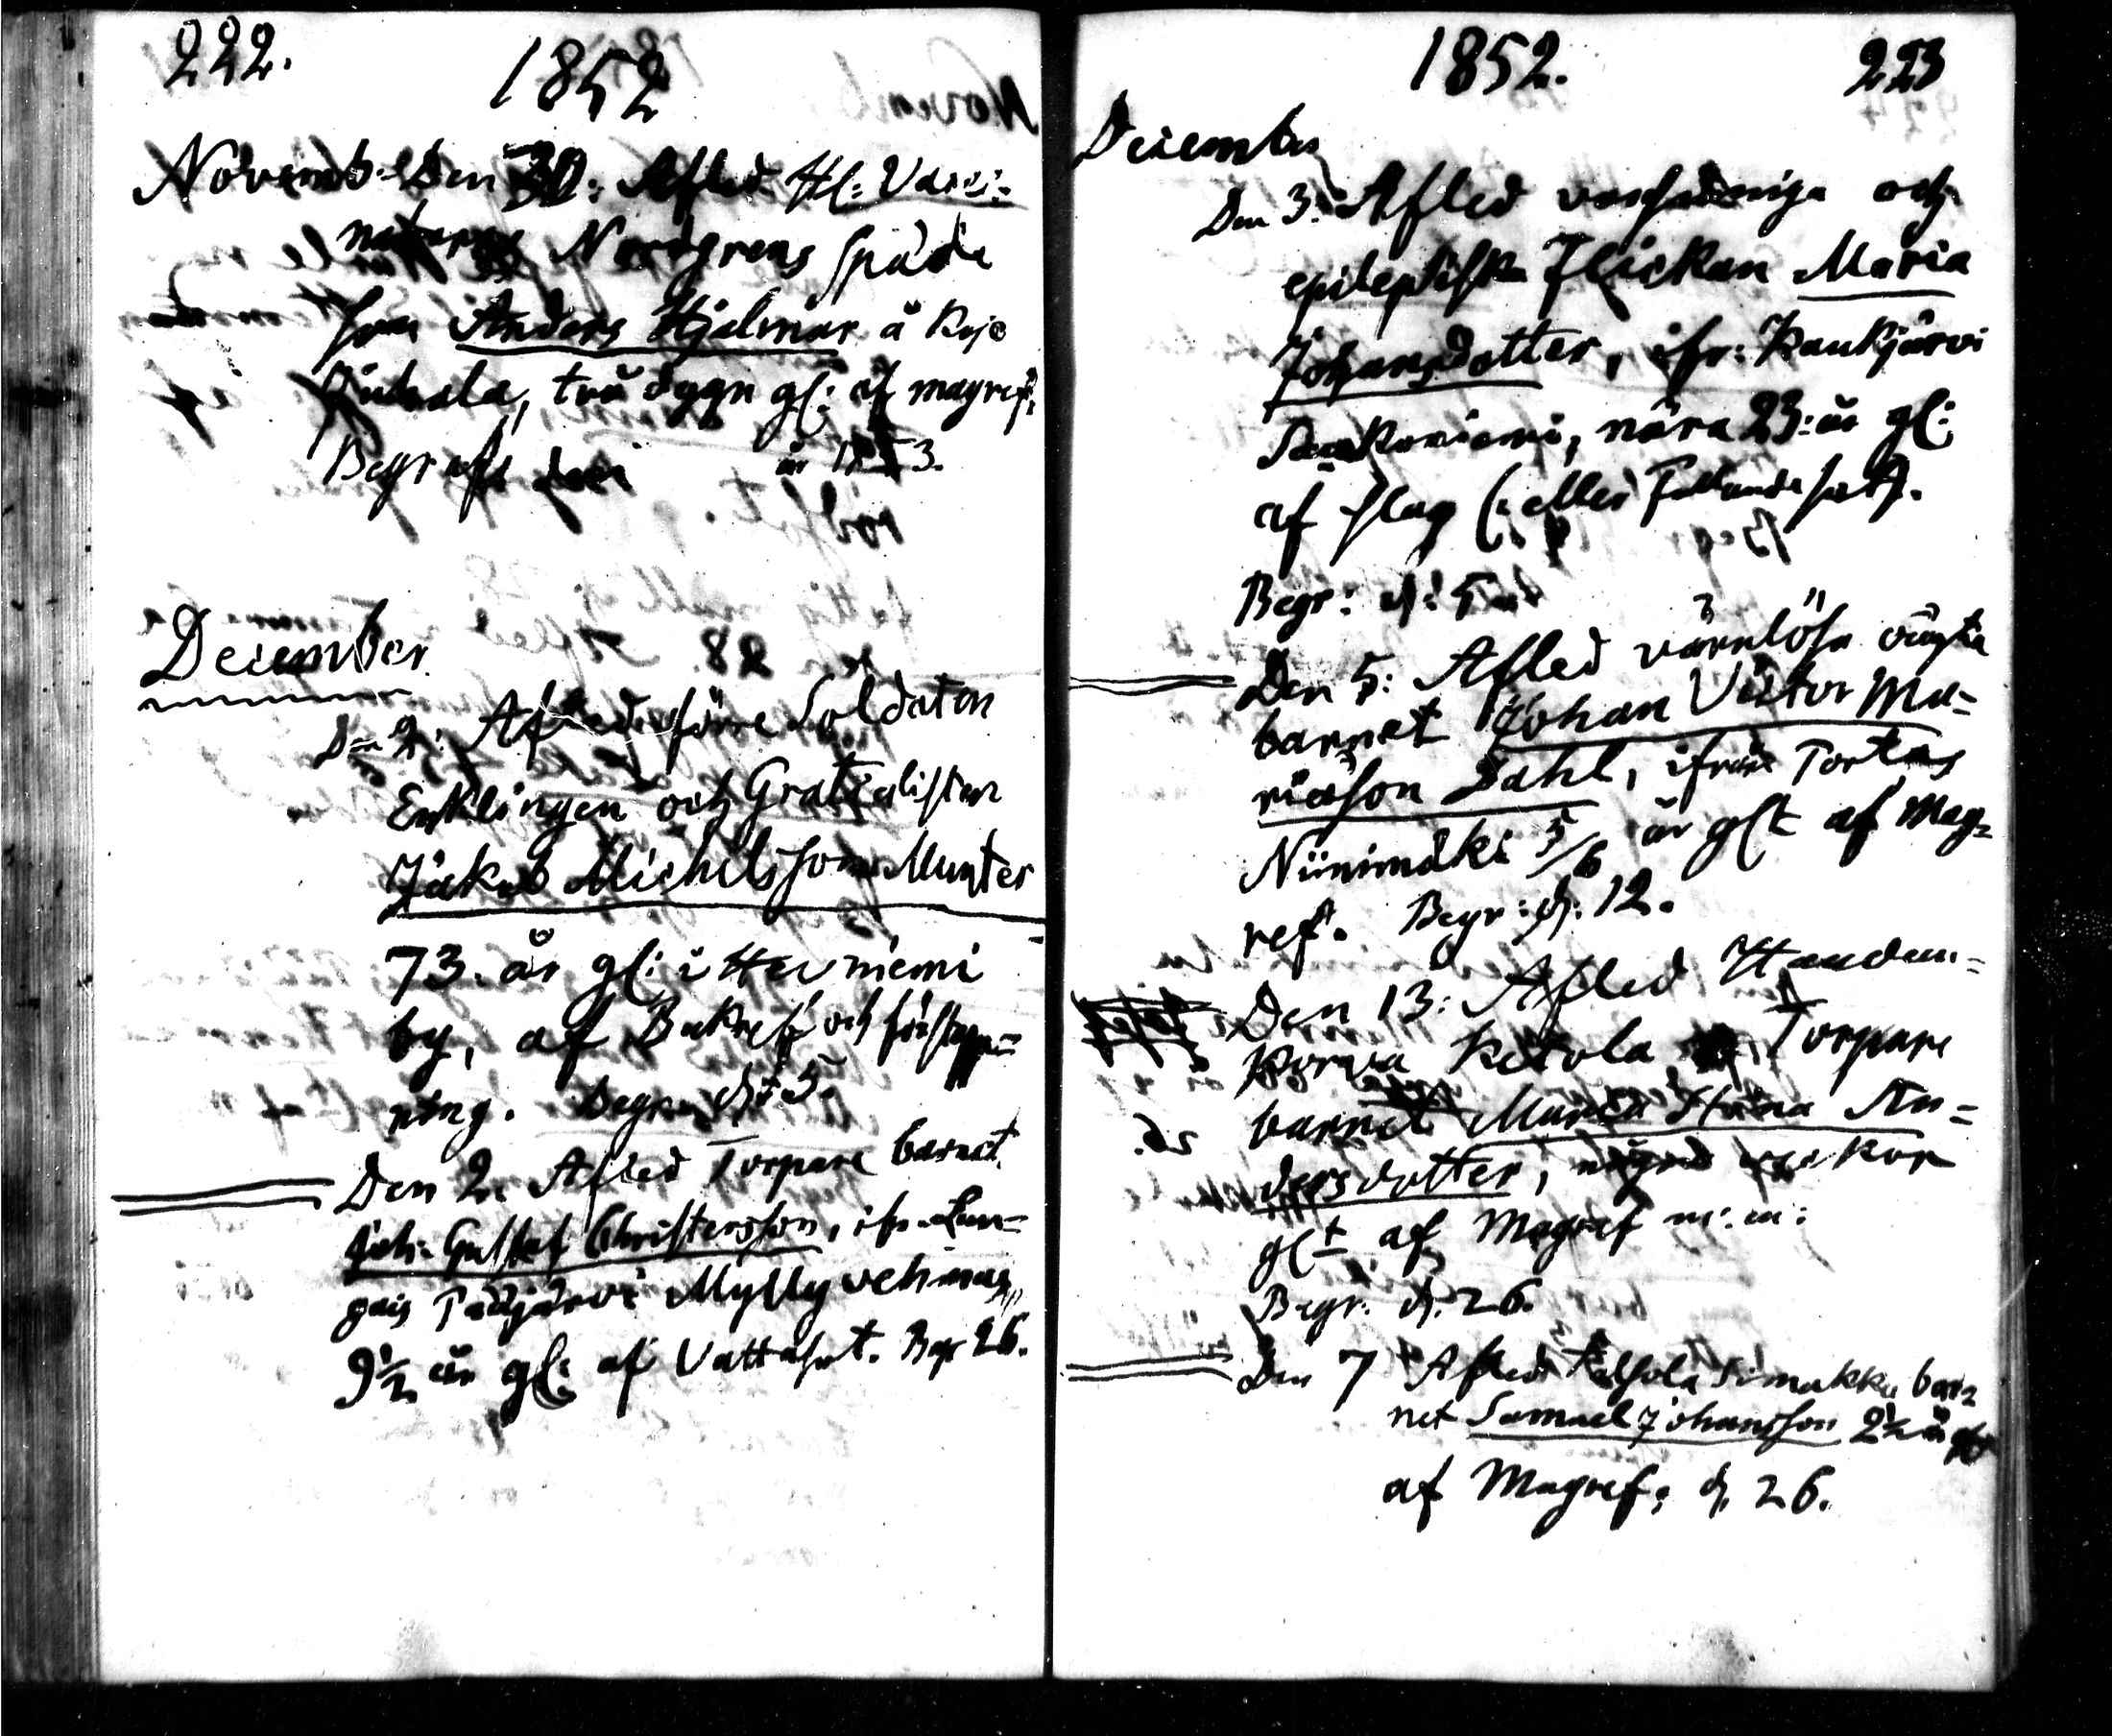 222.
1852
Novemb: Den 30: Afled H: Vacci=
natorns Nordgrens späda
son Anders Hjalmar å Koje
Juhola, två dygn gl: af magref.
Begrafs år 1853.
December
Den 2: Afled förre Soldaten
Enklingen och Gratialisten
Jakob Michelsson Munter
73. år gl: i Herniemi
by, af Bukref och förstopp=
ning. Begr. d: 5.
Den 2. Afled Torpare barnet
Joh: Gustaf Christersson, ifr. Lun=
gais Padjärvi Myllyvehmas,
9½ år gl: af Vattusot. Begr 26.
1852.
223
December
Den 3: Afled och
epileptiska Flickan Maria
Johansdotter, ifr: Kaukjärvi
nära 23: år gl:
af slag (: eller Fallandesot).
Begr: d: 5
Den 5: Afled värnlösa oägta
barnet Johan Victor Ma=
riæson Dahl, ifrån Portas
Niinimäki 5/6 år glt af Mag=
ref. Begr: d: 12.
Den 13: Afled Haudan=
korva Ketola Torpare
barnet Maria Stina An=
dersdotter, några vekor
glt af Magref m: m:
Begr. d. 26.
Den 7 Afled Simakka bar=
net Samuel Johansson 2½ år gl
af Magref: d. 26.